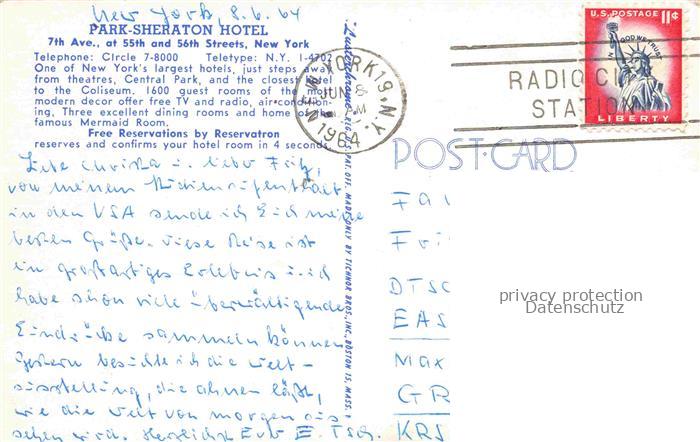 New York, 8.6.64
PARK-SHERATON HOTEL
7th Ave., at 55th and 56th Streets, New York
Telephone: CIrcle 7-8000 Teletype: N.Y. 1-4702
One of New York's largest hotels, just steps away
from theatres, Central Park, and the closest hotel
to the Coliseum. 1600 guest rooms of the most
modern decor offer free TV and radio, air-condition-
ing. Three excellent dining rooms and home of the
famous Mermaid Room.
Free Reservations by Reservatron
reserves and confirms your hotel room in 4 seconds.
Liebe Christa u. lieber Fritz,
von meinem Studienaufenthalt
in den USA sende ich Euch meine
besten Grüße. Diese Reise ist
ein großartiges Erlebnis u. ich
habe schon viele überwältigende
Eindrücke sammeln können
Gestern besuchte ich die Welt-
ausstellung, die ahnen läßt,
wie die Welt von morgen aus-
sehen wird. Herzlichst Euer E. Tsch.
MADE ONLY BY TECHNOR BROS., INC., BOSTON 15, MASS.
NEW YORK 19, N.Y.
JUN 8
1964
RADIO CITY
STATION
U.S. POSTAGE 11¢
IN GOD WE TRUST
LIBERTY
POST-CARD
FA
Fri
DTSC
EAS
Max
GR
KRS
privacy protection
Datenschutz